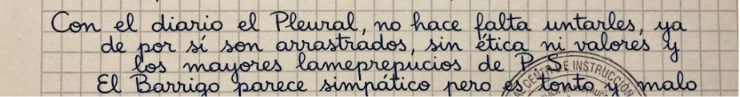 Con el diario el Pleural, no hace falta untarles, ya
de por sí son arrastrados, sin ética ni valores y
los mayores lameprepucios de P. S.
El Barrigo parece simpático pero es tonto y malo
CENTRAL DE INSTRUCCIÓN